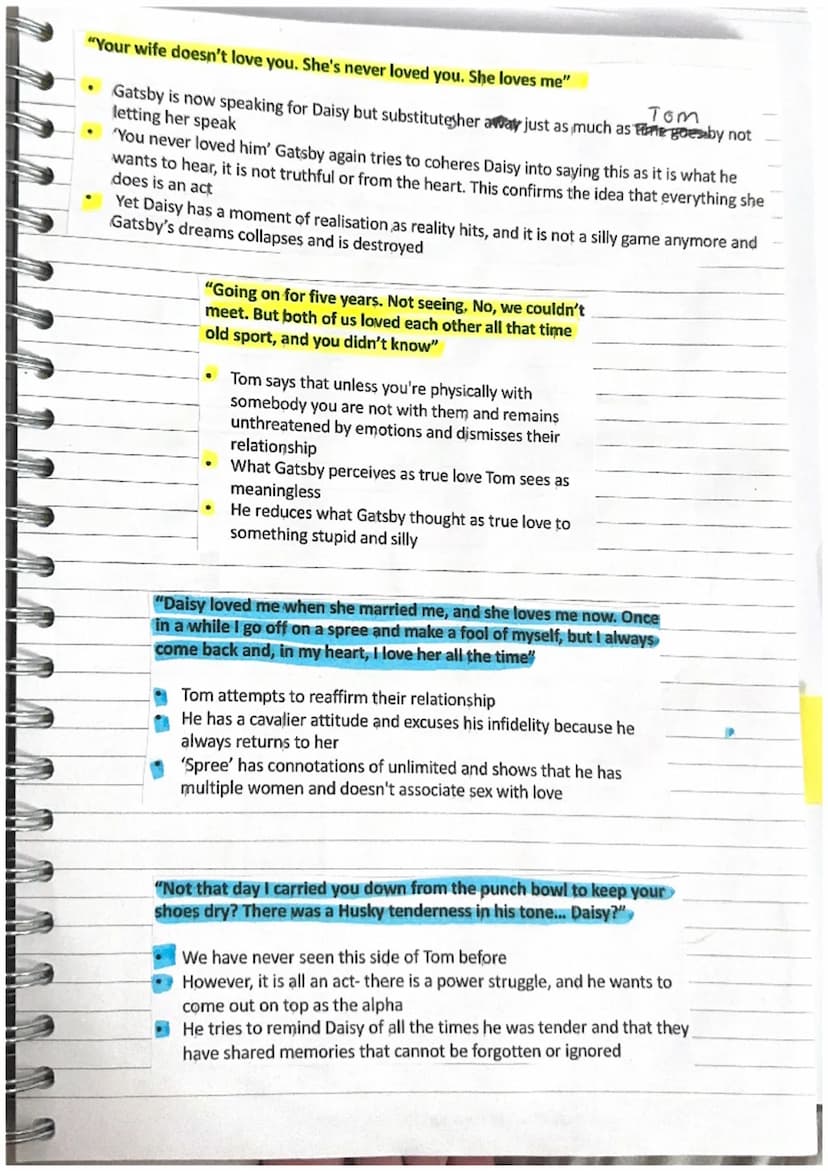 “Your wife doesn’t love you. She's never loved you. She loves me”
• Gatsby is now speaking for Daisy but substitutes her just as much as Tom by not
letting her speak
• ‘You never loved him’ Gatsby again tries to coheres Daisy into saying this as it is what he
wants to hear, it is not truthful or from the heart. This confirms the idea that everything she
does is an act
• Yet Daisy has a moment of realisation as reality hits, and it is not a silly game anymore and
Gatsby’s dreams collapses and is destroyed
“Going on for five years. Not seeing. No, we couldn’t
meet. But both of us loved each other all that time
old sport, and you didn’t know”
• Tom says that unless you're physically with
somebody you are not with them and remains
unthreatened by emotions and dismisses their
relationship
• What Gatsby perceives as true love Tom sees as
meaningless
• He reduces what Gatsby thought as true love to
something stupid and silly
“Daisy loved me when she married me, and she loves me now. Once
in a while I go off on a spree and make a fool of myself, but I always
come back and, in my heart, I love her all the time”
• Tom attempts to reaffirm their relationship
• He has a cavalier attitude and excuses his infidelity because he
always returns to her
• ‘Spree’ has connotations of unlimited and shows that he has
multiple women and doesn't associate sex with love
“Not that day I carried you down from the punch bowl to keep your
shoes dry? There was a Husky tenderness in his tone... Daisy?”
• We have never seen this side of Tom before
• However, it is all an act- there is a power struggle, and he wants to
come out on top as the alpha
• He tries to remind Daisy of all the times he was tender and that they
have shared memories that cannot be forgotten or ignored